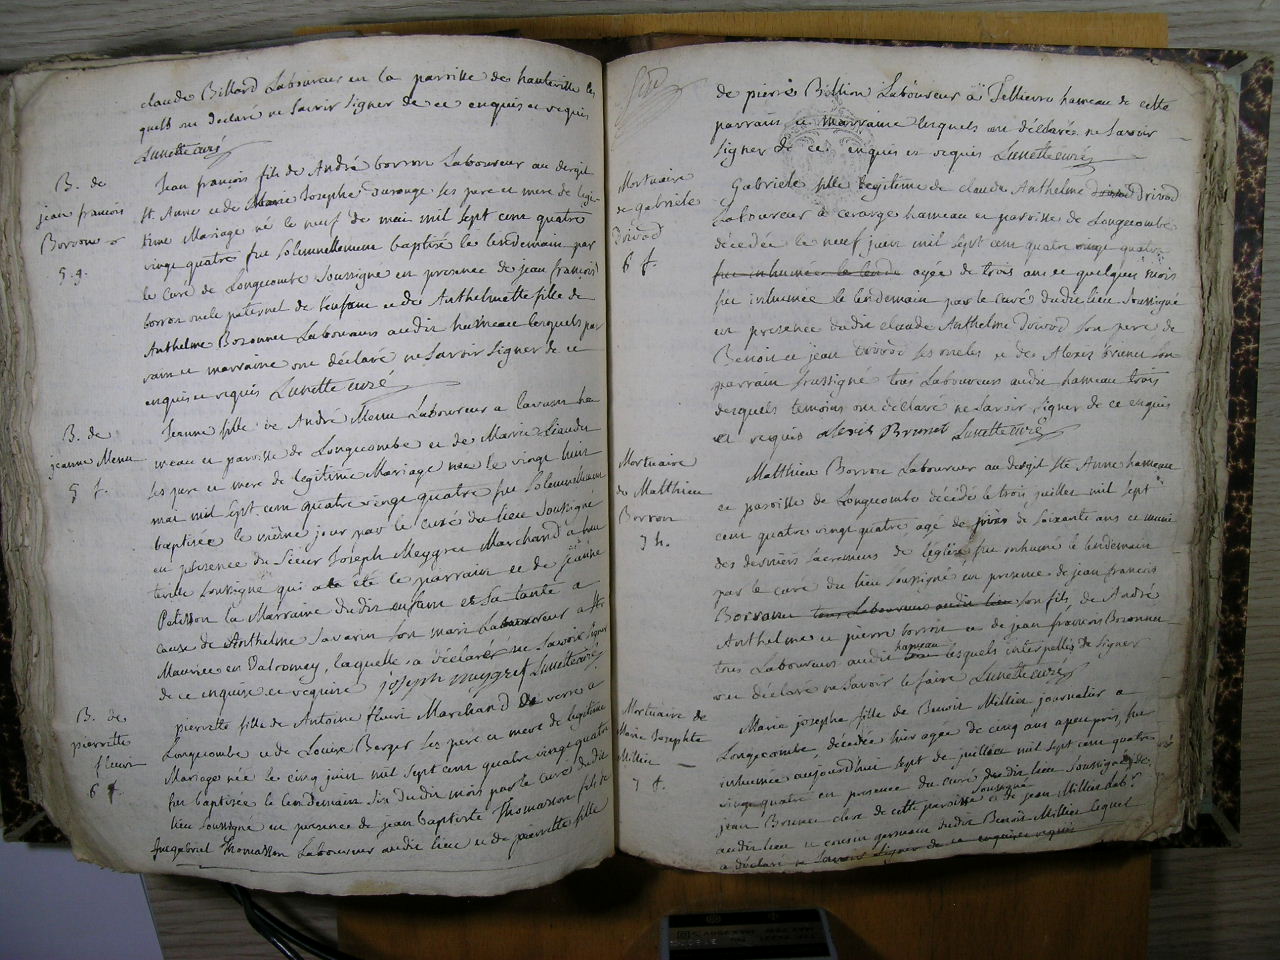 claude Billard Laboureur en la paroisse des hauteville les
quels ont declaré ne savoir signer de ce enquis et requis
Lunette curé
B. de
jean françois
Borron
5. g.
Jean françois fils de André borron Laboureur au dergit
St. Anne et de Marie Josephe Durouge ses pere et mere de legi-
time Mariage né le neuf de mai mil sept cent quatre
vingt quatre fut solemnellement baptisé le lendemain par
le curé de Longecombe soussigné en presence de jean françois
borron oncle paternel de l'enfant et de Anthelmette fille de
Anthelme Bozonnet Laboureurs audit hameau lesquels par
rain et marraine ont déclaré ne savoir signer de ce
enquis et requis Lunette curé
B. de
jeanne Menu
5 f.
Jeanne fille de André Menu Laboureur a lavant ha
meau et paroisse de Longecombe et de Marie Liaudu
ses pere et mere de legitime Mariage née le vingt huit
mai mil sept cent quatre vingt quatre fut solemnellement
baptisée le même jour par le curé du lieu soussigné
en presence du Sieur Joseph Meygret Marchand a hau
teville soussigné qui a été le parrain et de jeanne
la Marraine dudit enfant et sa tante a
cause de Anthelme Savarin son mari Laboureur a St.
Maurice en Valromey, laquelle a déclaré ne savoir signer
de ce enquise et requise joseph meygret Lunette curé
B. de
pierrette
fleuri
6 f.
pierrette fille de Antoine fleuri Marchand de verre a
Longecombe et de Louise Berger ses pere et mere de legitime
Mariage née le cinq juin mil sept cent quatre vingt quatre
fut baptisée le lendemain six dudit mois par le curé dudit
lieu soussigné en presence de jean baptiste Thomasson fils de
gabriel Thomasson Laboureur audit lieu et de pierrette fille
de pierre Billion Laboureur a Tellieru hameau de cette
parrain et marraine lesquels ont déclaré ne savoir
signer de ce enquis et requis Lunette curé
Mortuaire
de gabriele
Drivod
6 f.
Gabriele fille legitime de claude Anthelme Drivod
Laboureur a hameau et paroisse de Longecombe
décedée le neuf juin mil sept cent quatre vingt quatre
fut inhumée le lende agée de trois ans et quelques mois
fut inhumée le lendemain par le curé dudit lieu soussigné
en presence dudit claude Anthelme Drivod son pere de
Benoit et jean Drivod ses oncles et de Alexis brunet son
parrain soussigné tous Laboureurs audit hameau trois
desquels temoins ont déclaré ne savoir signer de ce enquis
et requis alexis Brunet Lunette curé
Mortuaire
de Matthieu
Borron
7 h.
Matthieu Borron Laboureur au dergit Ste Anne hameau
et paroisse de Longecombe décédé le trois juillet mil sept
cent quatre vingt quatre agé de près de soixante ans et muni
des derniers sacremens de l'église fut inhumé le lendemain
par le curé du lieu soussigné en presence de jean francois
Borron tous Laboureurs audit lieu son fils de André
Anthelme et pierre borron et de jean françois Bozonnet
tous Laboureurs audit hameau lesquels interpellés de signer
ont déclaré ne savoir le faire Lunette curé
Mortuaire de
Marie Josephte
Millier
7 f.
Marie josephe fille de Benoit Millier journalier a
Longecombe, décedée hier agée de cinq ans a peu près, fut
inhumée aujourd'hui sept de juillet mil sept cent quatre
vingt quatre en presence du curé dudit lieu soussigné de
jean Brunet clerc de cette paroisse soussigné et de jean Millier
audit lieu et cousin germain dudit Benoit Millier lequel
a déclaré ne savoir signer de ce enquis et requis